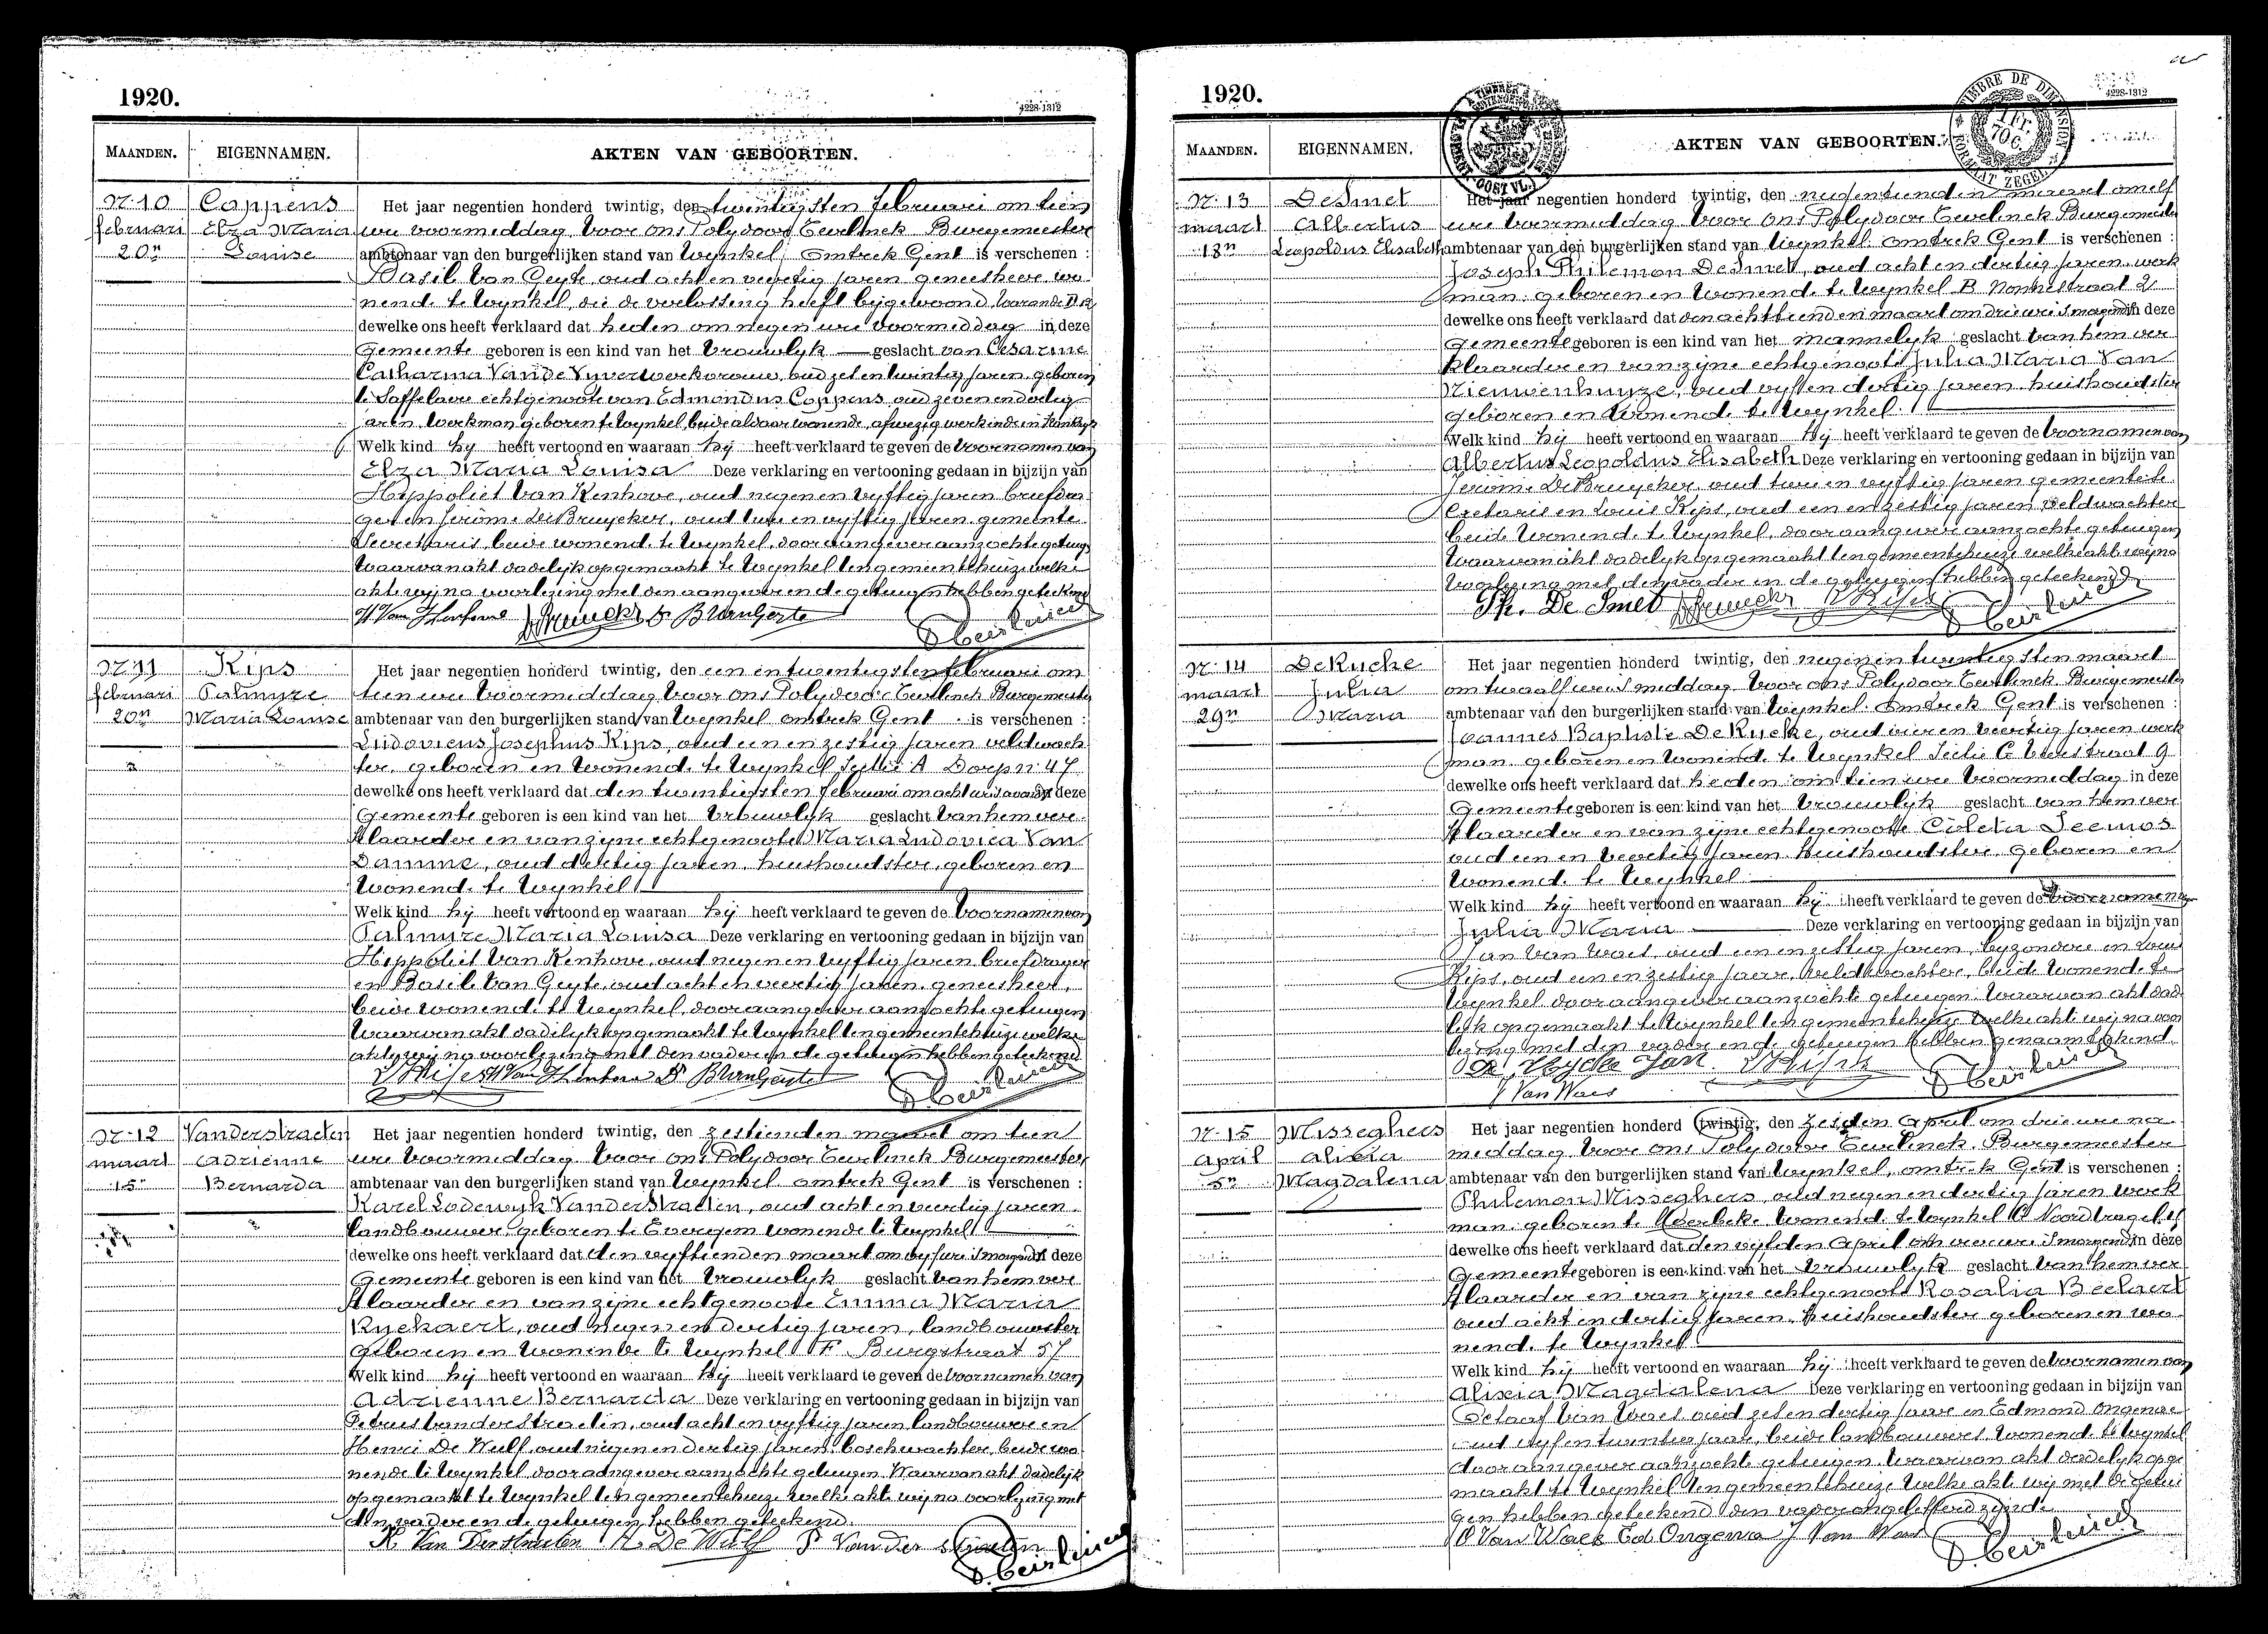 1920.
4228-1312
MAANDEN.
EIGENNAMEN.
AKTEN VAN GEBOORTEN.
Nr. 10
Coppens
Het jaar negentien honderd twintig, den twintigsten februari om tien
februari
Elza Maria
ure voormiddag, voor ons Polydoor Burgemeester
20n
Louise
ambtenaar van den burgerlijken stand van Wynkel, omtrek Gent is verschenen :
Basil Van Geyte oud acht en veertig jaren geneesheer, wo
nend te Wynkel, die de verlossing heeft bijgewoond
dewelke ons heeft verklaard dat heden om negen ure voormiddag in deze
Gemeente geboren is een kind van het vrouwlyk geslacht van Cesarine
Catharina Van de Vyver werkvrouw, oud zes en twintig jaren, geboren
te Saffelaere echtgenoote van Edmondus Coppens oud zeven en dertig
jaren werkman geboren te Wynkel, beide aldaar wonende, afwezig werkende in Frankryk
Welk kind hy heeft vertoond en waaraan hy heeft verklaard te geven de voornamen van
Elza Maria Louisa Deze verklaring en vertooning gedaan in bijzijn van
Hippoliet Van Kenhove, oud negen en vyftig jaren briefdra
ger en Jerôme De Bruycker, oud twee en vyftig jaren, gemeente
Secretaris, beide wonend te Wynkel, door aangever aanzochte getuigen
Waarvan akt dadelyk opgemaakt te Wynkel ten gemeentehuize welke
akte wij na voorlezing met den aangever en de getuigen hebben geteekend
Nr. 11
Kips
Het jaar negentien honderd twintig, den een en twentigsten februari om
februari
Palmyre
tien ure voormiddag voor ons Polydoor Burgemeester
20n
Maria Louise
ambtenaar van den burgerlijken stand van Wynkel omtrek Gent is verschenen :
Ludovicus Josephus Kips, oud een en zestig jaren veldwach
ter, geboren en wonend te Wynkel Sectie A Dorp nr 47
dewelke ons heeft verklaard dat den twintigsten februari om acht ure s'avonds in deze
Gemeente geboren is een kind van het vrouwlyk geslacht van hem ver
klaarder en van zijne echtgenoote Maria Ludovica Van
Damme, oud dertig jaren, huishoudster, geboren en
wonend te Wynkel
Welk kind hij heeft vertoond en waaraan hij heeft verklaard te geven de voornamen van
Palmyre Maria Louisa Deze verklaring en vertooning gedaan in bijzijn van
Hippoliet Van Kenhove, oud negen en vyftig jaren briefdrager
en Basile Van Geyte, oud acht en veertig jaren, geneesheer,
beide wonend te Wynkel, door aangever aanzochte getuigen
Waarvan akt dadelijk opgemaakt te Wynkel ten gemeentehuize welke
akte wij na voorlezing met den vader en de getuigen hebben geteekend
Nr. 12
Vanderstraeten
Het jaar negentien honderd twintig, den zestienden maart om tien
maart
Adrienne
ure voormiddag voor ons Polydoor Burgemeester
15n
Bernarda
ambtenaar van den burgerlijken stand van Wynkel omtrek Gent is verschenen :
Karel Lodewyk Vanderstraeten, oud acht en veertig jaren
landbouwer, geboren te Evergem wonende te Wynkel
dewelke ons heeft verklaard dat den vyftienden maart om vyf ure s'morgends in deze
Gemeente geboren is een kind van het vrouwlyk geslacht van hem ver
klaarder en van zijne echtgenoote Emma Maria
Ryckaert, oud negen en dertig jaren, landbouwster
geboren en wonende te Wynkel F Burgstraat 57
Welk kind hij heeft vertoond en waaraan hij heeft verklaard te geven de voornamen van
Adrienne Bernarda Deze verklaring en vertooning gedaan in bijzijn van
Petrus Vanderstraeten, oud acht en vyftig jaren landbouwer en
Henri De Wulf oud negen en dertig jaren boschwachter, beide wo
nende te Wynkel door aangever aanzochte getuigen Waarvan akt dadelijk
opgemaakt te Wynkel ten gemeentehuize welke akte wij na voorlezing met
den vader en de getuigen hebben geteekend.
K Van Derstraeten H. De Wulf P Vander straeten
1920.
4228-1312
TIMBRE DE DIMENSION
FORMAAT ZEGEL
MAANDEN.
EIGENNAMEN.
AKTEN VAN GEBOORTEN.
Nr. 13
DeSmet
Het jaar negentien honderd twintig, den negentienden maart om elf
maart
Albertus
ure voormiddag voor ons Polydoor Burgemeester
18n
Leopoldus Elisabeth
ambtenaar van den burgerlijken stand van Wynkel omtrek Gent is verschenen :
Joseph Philemon DeSmet, oud acht en dertig jaren, werk
man geboren en wonend te Wynkel B Nonnestraat 2
dewelke ons heeft verklaard dat den achttienden maart om drie ure s'morgends in deze
Gemeente geboren is een kind van het mannelyk geslacht van hem ver
klaarder en van zijne echtgenoote Julia Maria Van
Nieuwenhuyze, oud vyf en dertig jaren huishoudster
geboren en wonend te Wynkel
Welk kind hij heeft vertoond en waaraan hij heeft verklaard te geven de voornamen van
Albertus Leopoldus Elisabeth Deze verklaring en vertooning gedaan in bijzijn van
Jerôme De Bruycker, oud twee en vyftig jaren gemeente se
cretaris en Louis Kips, oud een en zestig jaren veldwachter
beide wonend te Wynkel, door aangever aanzochte getuigen
Waarvan akt dadelyk opgemaakt ten gemeentehuize welke akte wij na
voorlezing met den vader en de getuigen hebben geteekend
Ph. De Smet
Nr. 14
DeRycke
Het jaar negentien honderd twintig, den negen en twintigsten maart
maart
Julia
om twaalf ure s'middag voor ons Polydoor Burgemeester
29n
Maria
ambtenaar van den burgerlijken stand van Wynkel omtrek Gent is verschenen :
Joannes Baptiste DeRycke, oud vier en veertig jaren werk
man geboren en wonend te Wynkel Sectie C
dewelke ons heeft verklaard dat heden om tien ure voormiddag in deze
Gemeente geboren is een kind van het vrouwlyk geslacht van hem ver
klaarder en van zijne echtgenoote Coleta Seemos
oud een en veertig jaren huishoudster geboren en
wonend te Wynkel
Welk kind hij heeft vertoond en waaraan hij heeft verklaard te geven de voornamen van
Julia Maria Deze verklaring en vertooning gedaan in bijzijn van
Jan Van Waes, oud een en zestig jaren, byzondere en Louis
Kips, oud een en zestig jaar, veldwachter, beide wonend te
Wynkel door aangever aanzochte getuigen Waarvan akt dade
lijk opgemaakt te Wynkel ten gemeentehuize welke akte wij na voor
lezing met den vader en de getuigen hebben genaamteekend.
De Rycke Jan
J Van Waes
Nr. 15
Misseghers
Het jaar negentien honderd twintig, den zesden April om drie ure na
April
Alixia
middag voor ons Polydoor Burgemeester
5n
Magdalena
ambtenaar van den burgerlijken stand van Wynkel, omtrek Gent is verschenen :
Philemon Misseghers, oud negen en dertig jaren werk
man geboren te Moerbeke wonend te Wynkel
dewelke ons heeft verklaard dat den vijfden April om vier ure s'morgends in deze
Gemeente geboren is een kind van het vrouwlyk geslacht van hem ver
klaarder en van zijne echtgenoote Rosalia Beelaert
oud acht en dertig jaren, huishoudster geboren en wo
nend te Wynkel
Welk kind hij heeft vertoond en waaraan hij heeft verklaard te geven de voornamen van
Alixia Magdalena Deze verklaring en vertooning gedaan in bijzijn van
Octaaf Van Waes oud zes en dertig jaar en Edmond Ongenae
oud vyf en twintig jaar, beide landbouwers wonend te Wynkel
door aangever aanzochte getuigen, waarvan akt dadelyk opge
maakt te Wynkel ten gemeentehuize welke akte wij met de getui
gen hebben geteekend den vader ongeletterd zijnde
O Van Waes Ed Ongena J Van Waes